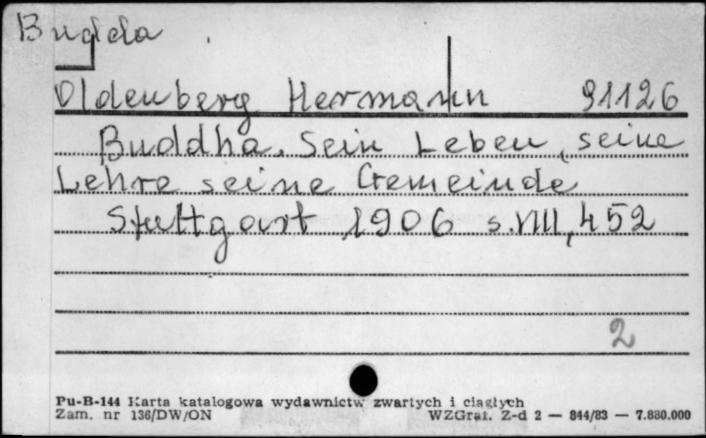 Budda
Oldenberg Hermann 91126
Buddha. Sein Leben, seine
Lehre seine Gemeinde
Stuttgart 1906 s. VIII, 452
2
Pu-B-144 Karta katalogowa wydawnictw zwartych i ciągłych
Zam. nr 136/DW/ON WZGraf. Z-d 2 — 844/83 — 7.880.000